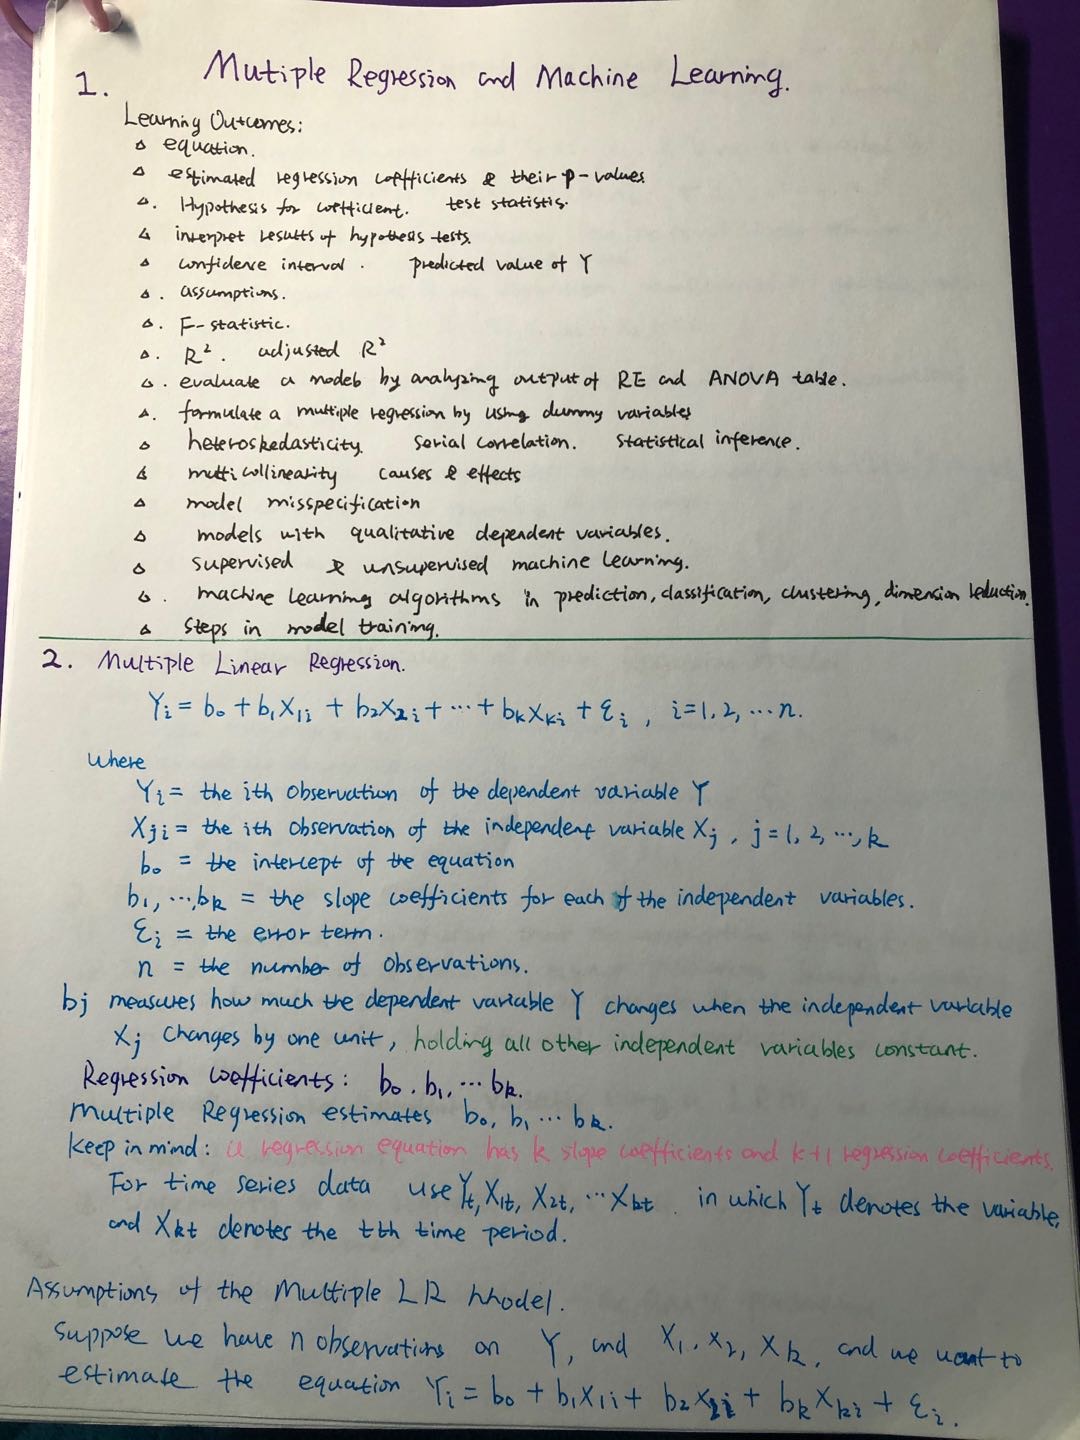 1. Mutiple Regression and Machine Learning.
Learning Outcomes:
△ equation.
△ estimated regression coefficients & their p-values
△. Hypothesis for coefficient. test statistis.
△ interpret results of hypothesis tests.
△ confidence interval. predicted value of Y
△. assumptions.
△. F-statistic.
△. R². adjusted R²
△. evaluate a modeb by analyzing output of RE and ANOVA table.
△. formulate a multiple regression by using dummy variables
△ heteroskedasticity. Serial correlation. Statistical inference.
△ multicollinearity causes & effects
△ model misspecification
△ models with qualitative dependent variables.
△ supervised & unsupervised machine learning.
△. machine learning algorithms in prediction, classification, clustering, dimension reduction.
△ steps in model training.
2. Multiple Linear Regression.
Yᵢ = b₀ + b₁X₁ᵢ + b₂X₂ᵢ + ⋯ + bₖXₖᵢ + εᵢ, i=1,2,⋯n.
where
Yᵢ = the ith observation of the dependent variable Y
Xⱼᵢ = the ith observation of the independent variable Xⱼ, j=1,2,⋯,k
b₀ = the intercept of the equation
b₁, ⋯,bₖ = the slope coefficients for each of the independent variables.
εᵢ = the error term.
n = the number of observations.
bj measures how much the dependent variable Y changes when the independent variable
Xⱼ changes by one unit, holding all other independent variables constant.
Regression coefficients: b₀. b₁, ⋯ bₖ.
Multiple Regression estimates b₀, b₁ ⋯ bₖ.
keep in mind: a regression equation has k slope coefficients and k+1 regression coefficients.
For time series data use Yₜ, X₁ₜ, X₂ₜ, ⋯Xₖₜ. in which Yₜ denotes the variable,
and Xₖₜ denotes the tth time period.
Assumptions of the Multiple LR Model.
suppose we have n observations on Y, and X₁, X₂, Xₖ, and we want to
estimate the equation Yᵢ = b₀ + b₁X₁ᵢ + b₂X₂ᵢ + bₖXₖᵢ + εᵢ.